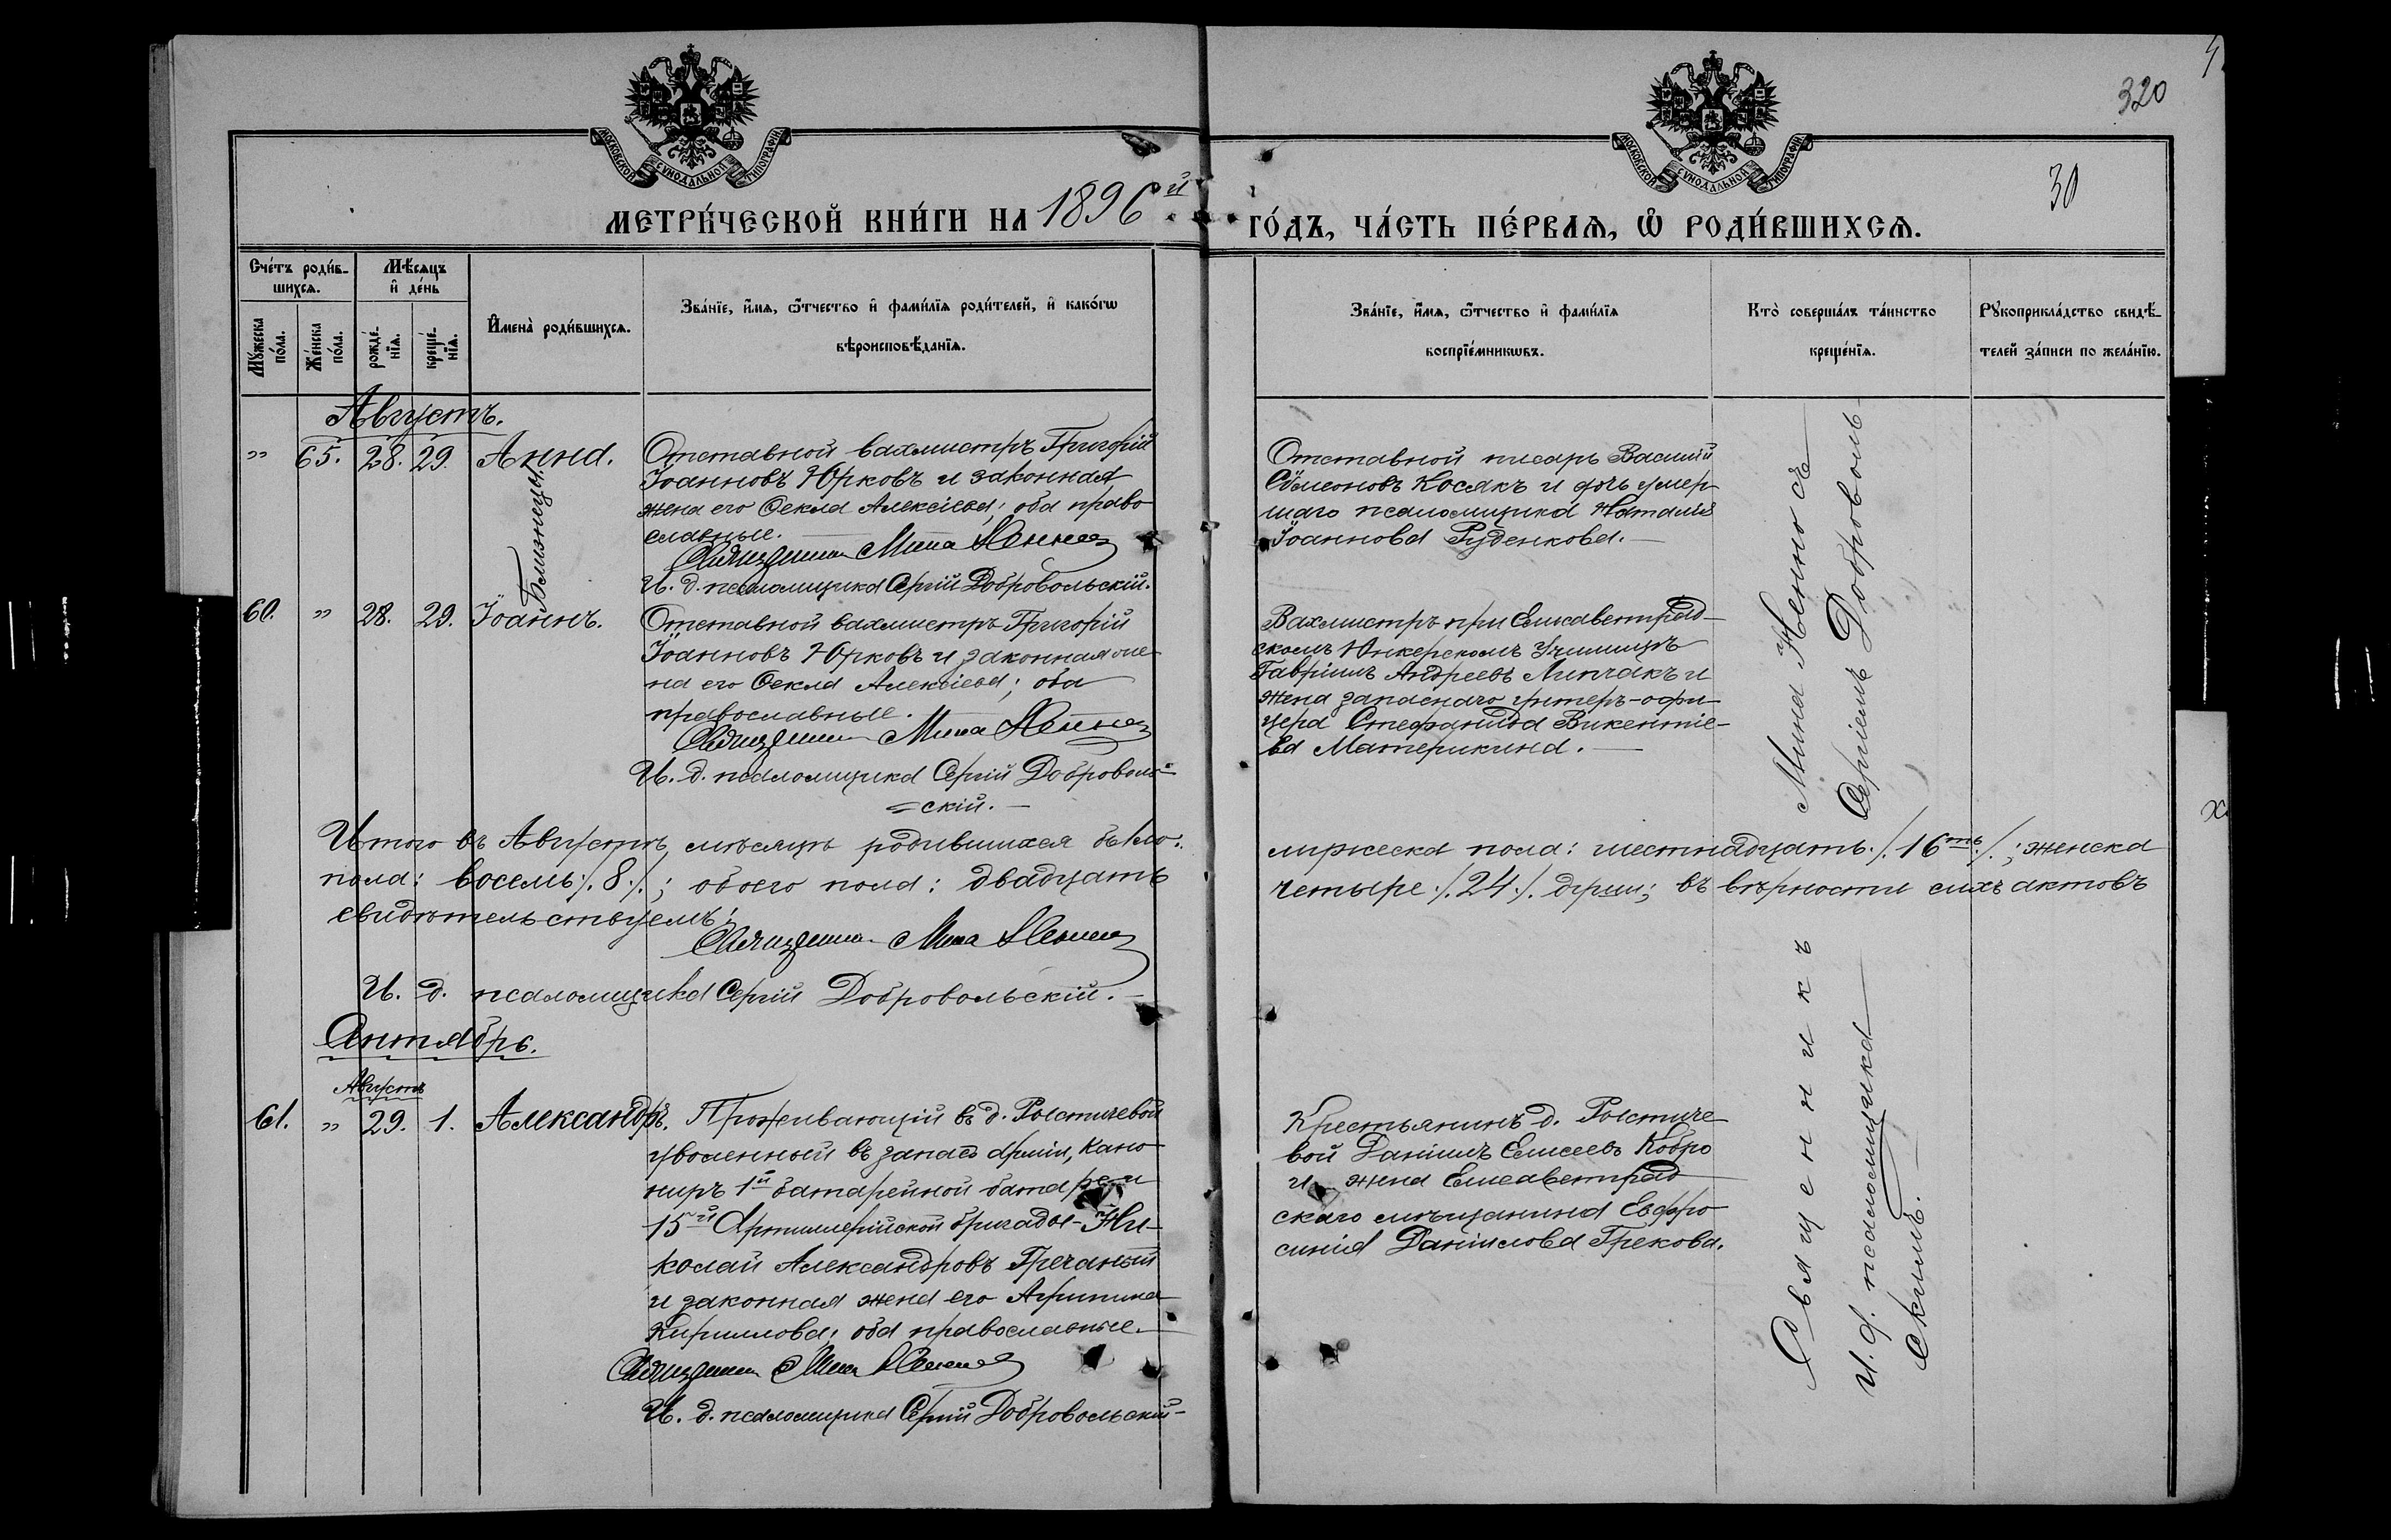 320
30
МОСКОВСКОЙ СѴНОДАЛЬНОЙ ТИПОГРАФІИ
МОСКОВСКОЙ СѴНОДАЛЬНОЙ ТИПОГРАФІИ
МЕТРИ́ЧЕСКОЙ КНИ́ГИ НА 1896й
ГО́ДЪ, ЧА́СТЬ ПЕ́РВАѦ, Ѡ РОДИ́ВШИХСѦ.
Сче́тъ роди́вшихсѧ.
Мꙋ́жеска по́ла.
Же́нска по́ла.
Мѣ́сѧцъ и҆ де́нь
рожде́нїѧ.
креще́нїѧ.
И҆мена̀ роди́вшихсѧ.
Зва́нїе, и҆́мѧ, ѻ҆́тчество и҆ фами́лїѧ роди́телей, и҆ како́гѡ
вѣроисповѣ́данїѧ.
Зва́нїе, и҆́мѧ, ѻ҆́тчество и҆ фами́лїѧ
воспрїе́мникѡвъ.
Кто̀ соверша́лъ та́инство
креще́нїѧ.
Рꙋкоприкла́дство свидѣ́-
телей за́писи по жела́нїю.
Августъ.
" 65. 28. 29. Анна.
Близнецы.
Отставной вахмистръ Григорій
Іоанновъ Юрковъ и законная
жена его Ѳекла Алексіева; оба право
славные. —
Священникъ Мина
И. д. псаломщика Сергій Добровольскій.
Отставной писарь Василій
Сѵмеоновъ Косякъ и дочь умер
шаго псаломщика Наталія
Іоаннова Руденкова. —
60. " 28. 29. Іоаннъ.
Отставной вахмистръ Григорій
Іоанновъ Юрковъ и законная же
на его Ѳекла Алексіева; оба
православные.
Священникъ Мина
И. д. псаломщика Сергій Доброволь=
=скій. —
Вахмистръ при Елисаветград-
скомъ Юнкерскомъ Училищѣ
Гавріилъ Андреевъ Липчакъ и
жена запаснаго унтеръ-офи-
цера Стефанида Викентіе-
ва Материкина. —
Итого въ Августѣ мѣсяцѣ родившихся было:
мужеска пола: шестнадцать ./. 16ть ./. ; женска
пола: восемь ./. 8 ./. ; обоего пола: двадцать
четыре ./. 24 ./. души; въ вѣрности сихъ актовъ
свидѣтельствуемъ:
Священникъ Мина
И. д. псаломщика Сергій Добровольскій. —
Сентябрь.
Августъ
61. " 29. 1. Александръ.
Проживающій въ д. Ровстичевой
уволенный въ запасъ арміи, кано
ниръ 1й батарейной батареи
15й Артиллерійской бригады - Ни-
колай Александровъ Гречаный
и законная жена его Агрипина
Кириллова; оба православные. —
Священникъ Мина
И. д. псаломщика Сергій Добровольскій -
Крестьянинъ д.
вой Даніилъ Елисеевъ Кобро
и жена Елисаветград
скаго мѣщанина Евфро
синія Даніилова Грекова.
Священникъ Мина
И. д. псаломщика Сергіемъ Доброволь-
скимъ. —